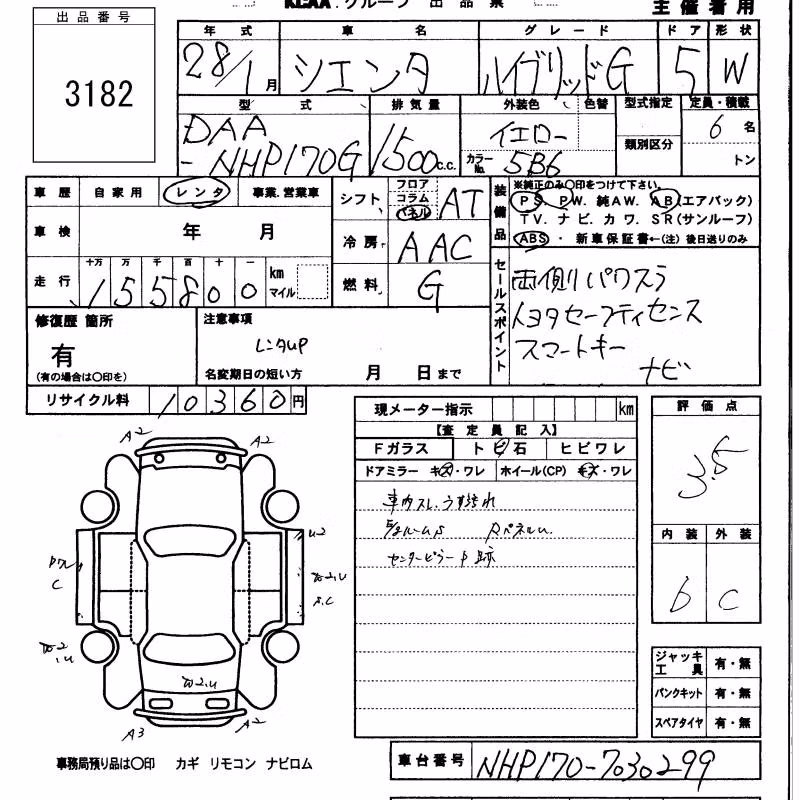 KCAA. グループ 出品票
主催者用
出品番号
3182
年式 車名 グレード ドア 形状
28/1月 シエンタ ハイブリッドG 5 W
型式 排気量 外装色 色替 型式指定 定員・積載
DAA-NHP170G 1500c.c. イエロー 6名
カラーNo. 5B6 類別区分 トン
車歴 自家用 レンタ 事業.営業車
シフト フロア コラム パネル AT
装備品 ※純正のみ○印をつけて下さい。
PS. PW. 純AW. AB(エアバック)
TV. ナビ. カワ. SR(サンルーフ)
ABS ・ 新車保証書←(注) 後日送りのみ
車検 年 月
冷房 AAC
走行 十万 万 千 百 十 一 km マイル
155800
燃料 G
セールスポイント
両側パワスラ
トヨタセーフティセンス
スマートキー
ナビ
修復歴 箇所
有
(有の場合は○印を)
注意事項
レンタup
名変期日の短い方 月 日まで
リサイクル料 10360円
現メーター指示 km
【査定員記入】
Fガラス トビ石 ヒビワレ
ドアミラー キズ・ワレ ホイール(CP) キズ・ワレ
車内スレ.うす汚れ
Rパネルu
センターピラー
跡
評価点
3.5
内装 外装
6 C
A2 A2
U2
C
A3 A2
ジャッキ工具 有・無
パンクキット 有・無
スペアタイヤ 有・無
事務局預り品は○印 カギ リモコン ナビロム
車台番号 NHP170-7030299